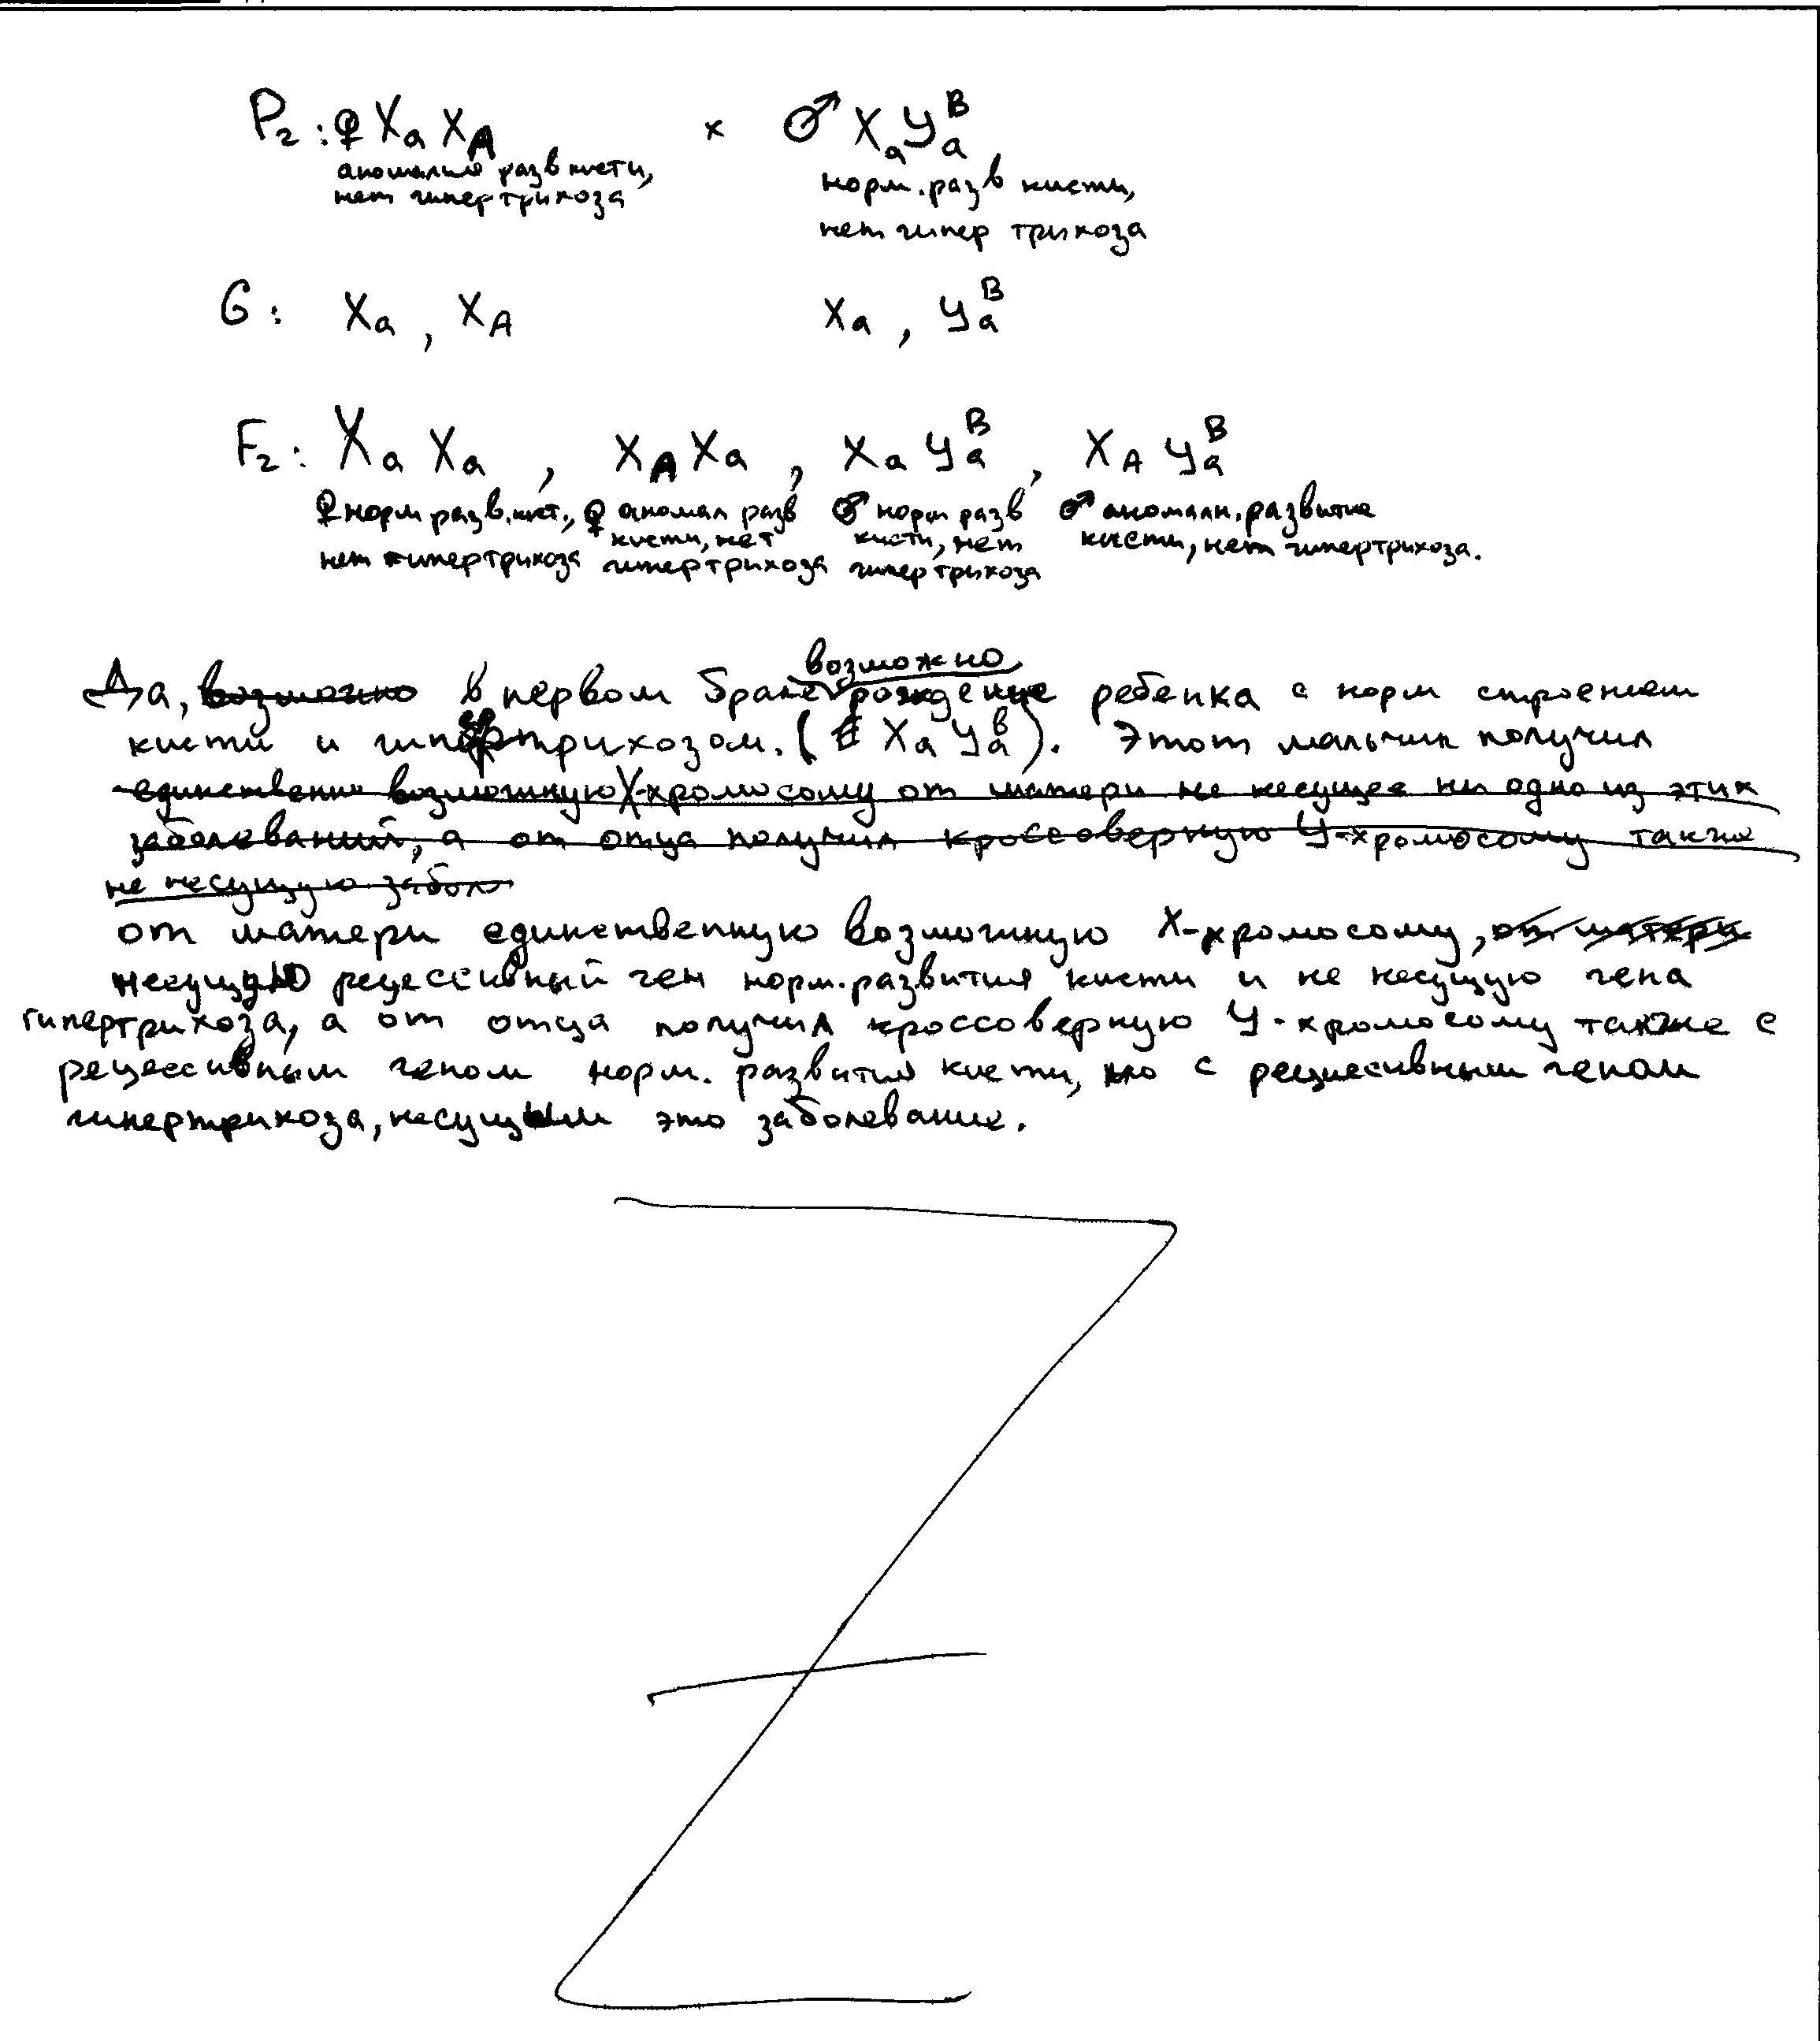 P₂: ♀ XaXA × ♂ XaYaᴮ
аномалия разв кисти, норм. разв кисти,
нет гипертрихоза нет гипер трихоза
G: Xa, XA Xa, Yaᴮ
F₂: XaXa, XAXa, XaYaᴮ, XAYaᴮ
♀ норм разв. кист., ♀ аномал разв ♂ норм разв ♂ аномалн. развитие
нет гипертрихоза кисти, нет гипертрихоза кисти, нет гипертрихоза кисти, нет гипертрихоза.
возможно
Да, возможно в первом браке рождение ребенка с норм строением
кисти и гипертрихозом. (XaYaᵇ). Этот мальчик получил
единственно возможную X-хромосому от матери не несущее ни одно из этих
заболеваний, а от отца получил кроссоверную Y-хромосому также
не несущую забол
от матери единственную возможную X-хромосому, от матери
несущую рецессивный ген норм. развития кисти и не несущую гена
гипертрихоза, а от отца получил кроссоверную Y-хромосому также с
рецессивным геном норм. развития кисти, но с рецессивным геном
гипертрихоза, несущим это заболевание.